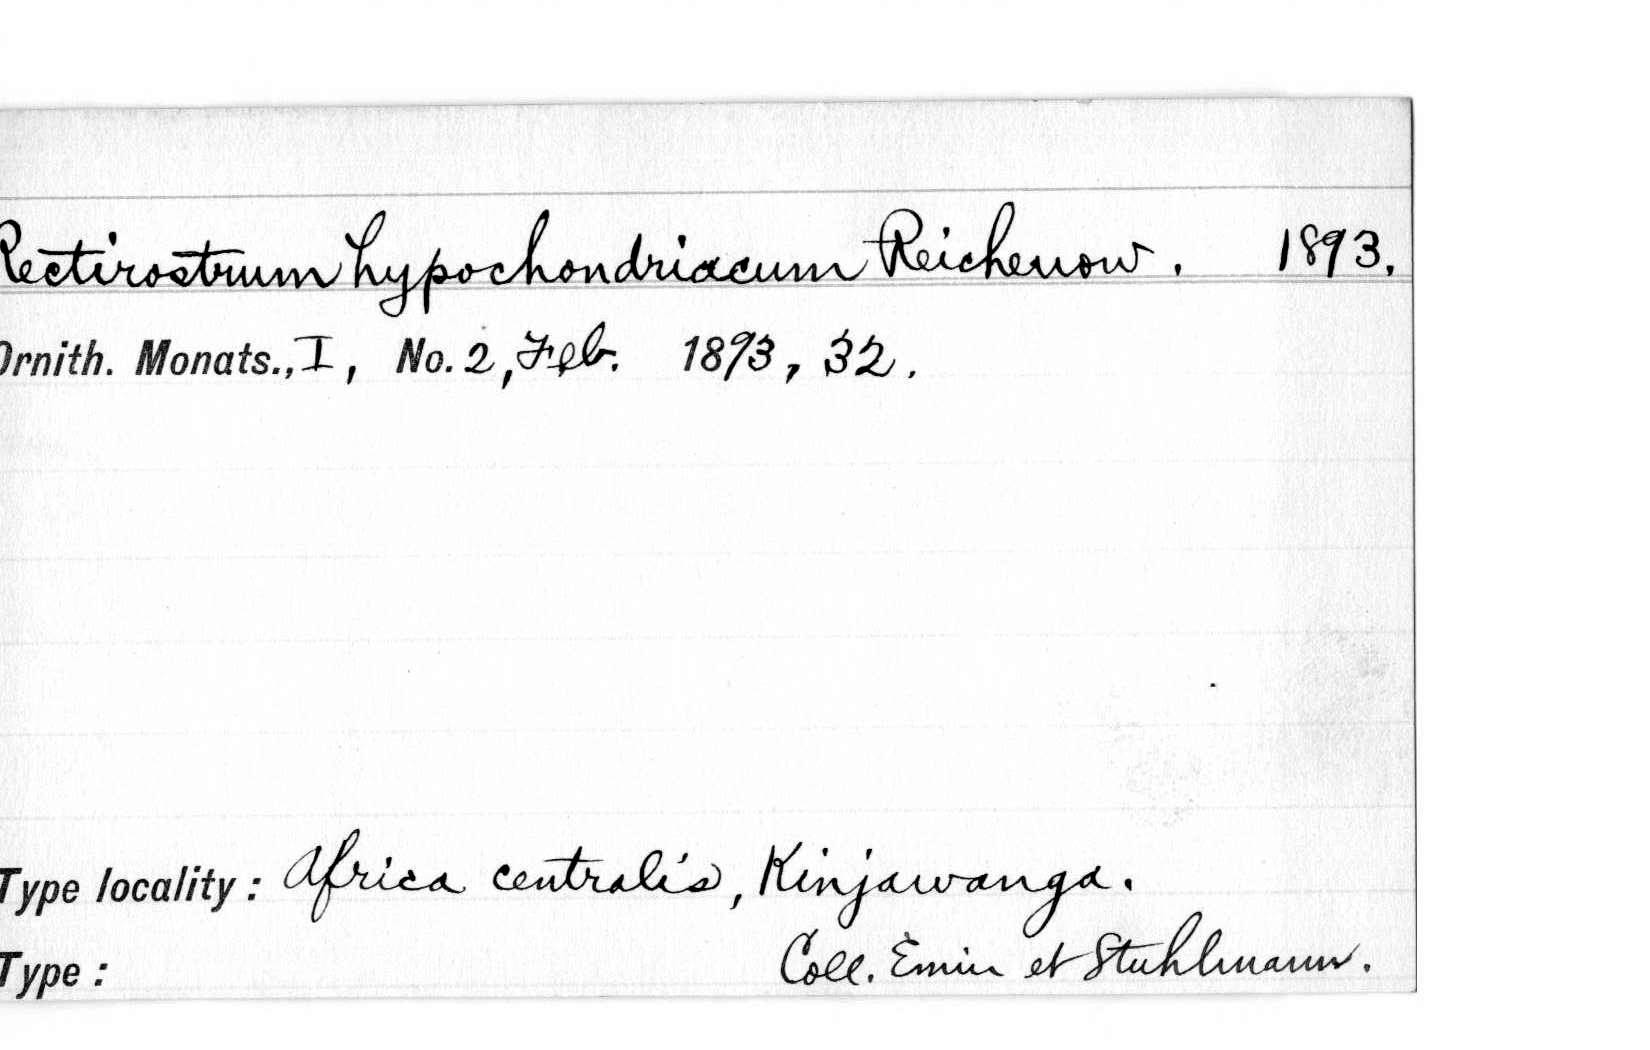 Rectirostrum hypochondriacum Reichenow. 1893.
Ornith. Monats., I, No. 2, Feb. 1893, 32.
Type locality: Africa centralis, Kinjawanga.
Type: Coll. Emin et Stuhlmann.